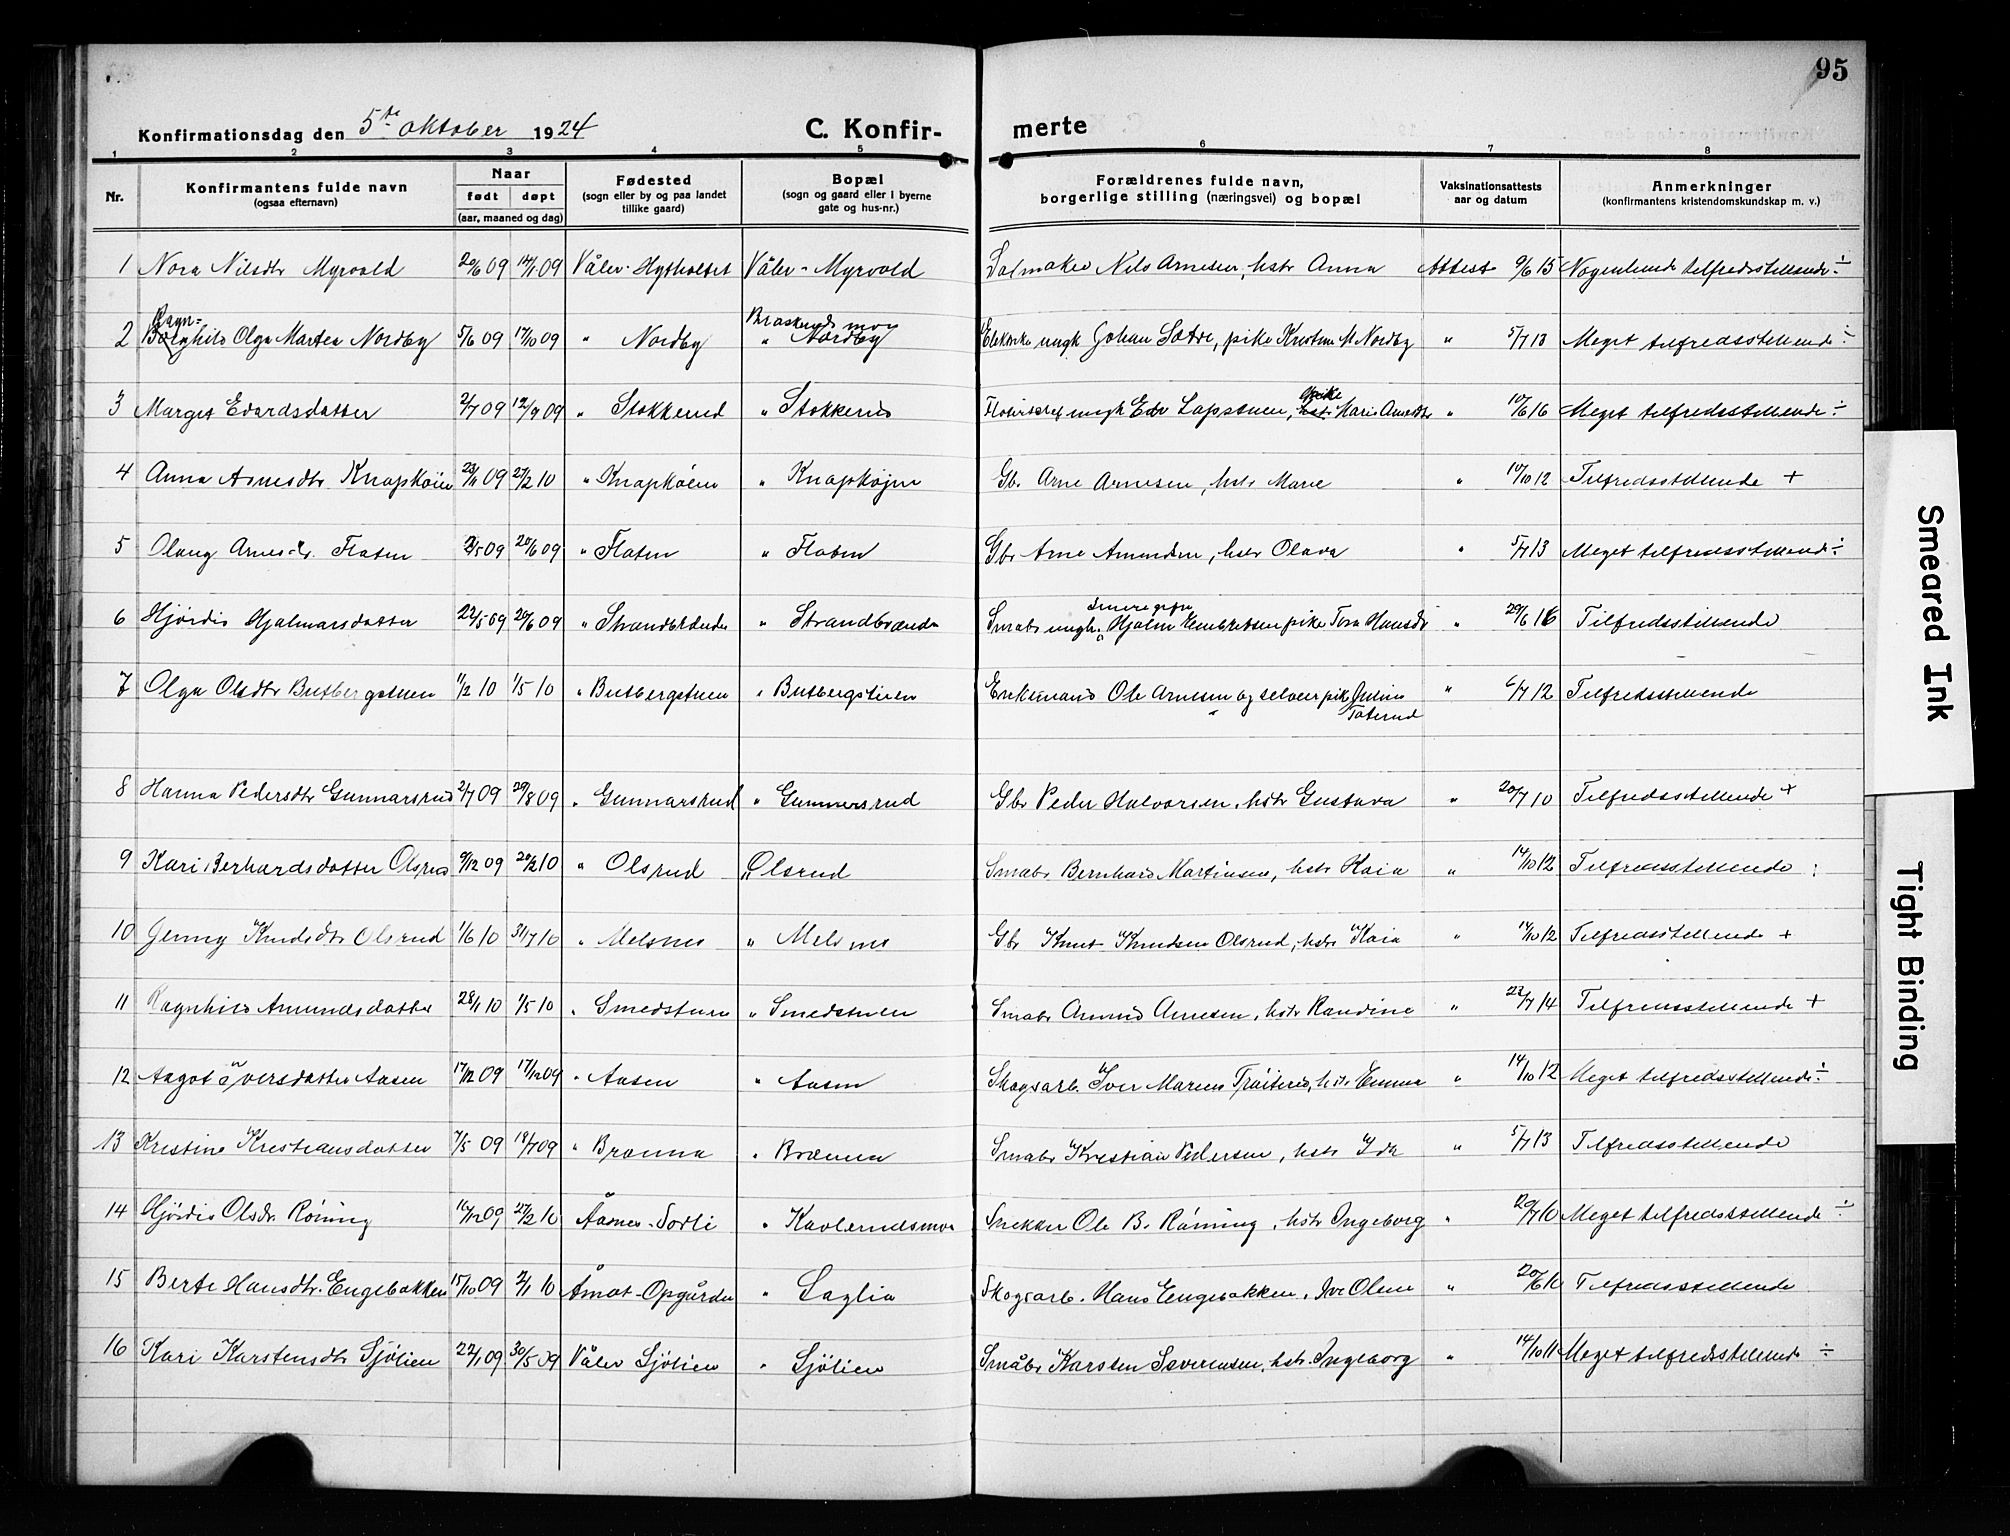 95
Konfirmationsdag den 5te oktober 1924
C. Konfir- merte
1 2 3 4 5 6 7 8
Nr. Konfirmantens fulde navn (ogsaa efternavn) Naar født døpt (aar, maaned og dag) Fødested (sogn eller by og paa landet tillike gaard) Bopæl (sogn og gaard eller i byerne gate og hus-nr.) Forældrenes fulde navn, borgerlige stilling (næringsvei) og bopæl Vaksinationsattests aar og datum Anmerkninger (konfirmantens kristendomskundskap m. v.)
1 Nora Nilsdtr Myrvold 20/6 09 09 Våler - Våler - Myrvold Salmaker Nils Arnesen, hstr Anna Attest 9/6 15 Nogenlunde tilfredsstillende ÷
Ragn= Braskerudsmoen
2 Borghild Olga Marten Nordby 5/6 09 17/10 09 " Nordby " Nordby ungk Johan Sætre, pike Kristine M Nordby " 5/7 13 Meget tilfredsstillende ÷
pike
3 Marget Evardsdatter 2/7 09 12/9 09 " Stokkerud " Stokkerud ungk Edv Lapstuen, hstr Marie Arnesdtr " 10/6 16 Meget tilfredsstillende ÷
4 Anna Arnesdtr Knapkøien 23/11 09 27/2 10 " Knapkøien " Knapkøjen Gbr Arne Arnesen, hstr Marie " 10/10 12 Tilfredsstillende +
5 Olaug Arnesdtr. Flaten /5 09 20/6 09 " Flaten " Flaten Gbr Arne Amundsen, hstr Olava " 5/7 13 Meget tilfredsstillende ÷
senere gifte
6 Hjørdis Hjalmarsdatter 22/5 09 20/6 09 " Strandbrænden " Strandbrænden Småbr ungk. Hjalm Embretsen pike Tora Hansdtr " 29/6 16 Tilfredsstillende
7 Olga Olsdtr Butbergstuen 11/2 10 1/5 10 " Butbergstuen " Butbergstuen Enkemand Ole Arnesen og pike Juline " 6/7 12 Tilfredsstillende
Toterud
8 Hanna Pedersdtr Gunnarsrud 2/7 09 29/8 09 " Gunnarsrud " Gunnersrud Gbr Peder Halvorsen, hstr Gustava " 20/7 10 Tilfredsstillende +
9 Kari Berhardsdatter Olsrud 9/12 09 20/2 10 " Olsrud " Olsrud Småbr Bernhard Martinsen, hstr Kaia " 14/10 12 Tilfredsstillende :
10 Jenny Knudsdtr Olsrud 1/6 10 31/7 10 " Melsnes " Melsnes Gbr Knut Knudsen Olsrud, hstr Kaia " 14/10 12 Tilfredsstillende +
11 Ragnhild Amundsdatter 28/1 10 1/5 10 " Smedstuen " Smedstuen Småbr Amund Arnesen, hstr Randine " 23/7 14 Tilfredsstillende +
12 Aagot Iversdatter Aasen 17/12 09 17/12 09 " Aasen " Aasen Skogsarb. Iver Marens, hstr Emma " 14/10 12 Meget tilfredsstillende ÷
13 Kristine Kristiansdatter 7/5 09 18/7 09 " Brænna " Brænna Småbr Kristian Pedersen, hstr Ida " 5/7 13 Tilfredsstillende
14 Hjørdis Olsdr. Røning 16/12 09 27/2 10 Åsnes - Sørli " Kavlerudsmoen Snekker Ole B. Røning, hstr Ingeborg " 20/7 10 Meget tilfredsstillende ÷
15 Berte Hansdtr. Engebakken 15/10 09 2/1 10 Åmot - Opgården " Saglia Skogsarb. Hans Engebakken, Olene " 20/6 10 Tilfredsstillende
16 Kari Karstensdtr Sjølien 22/1 09 30/5 09 Våler Sjølien " Sjølien Småbr Karsten Severinsen, hstr. Ingeborg " 14/10 11 Meget tilfredsstillende ÷
Smeared Ink
Tight Binding